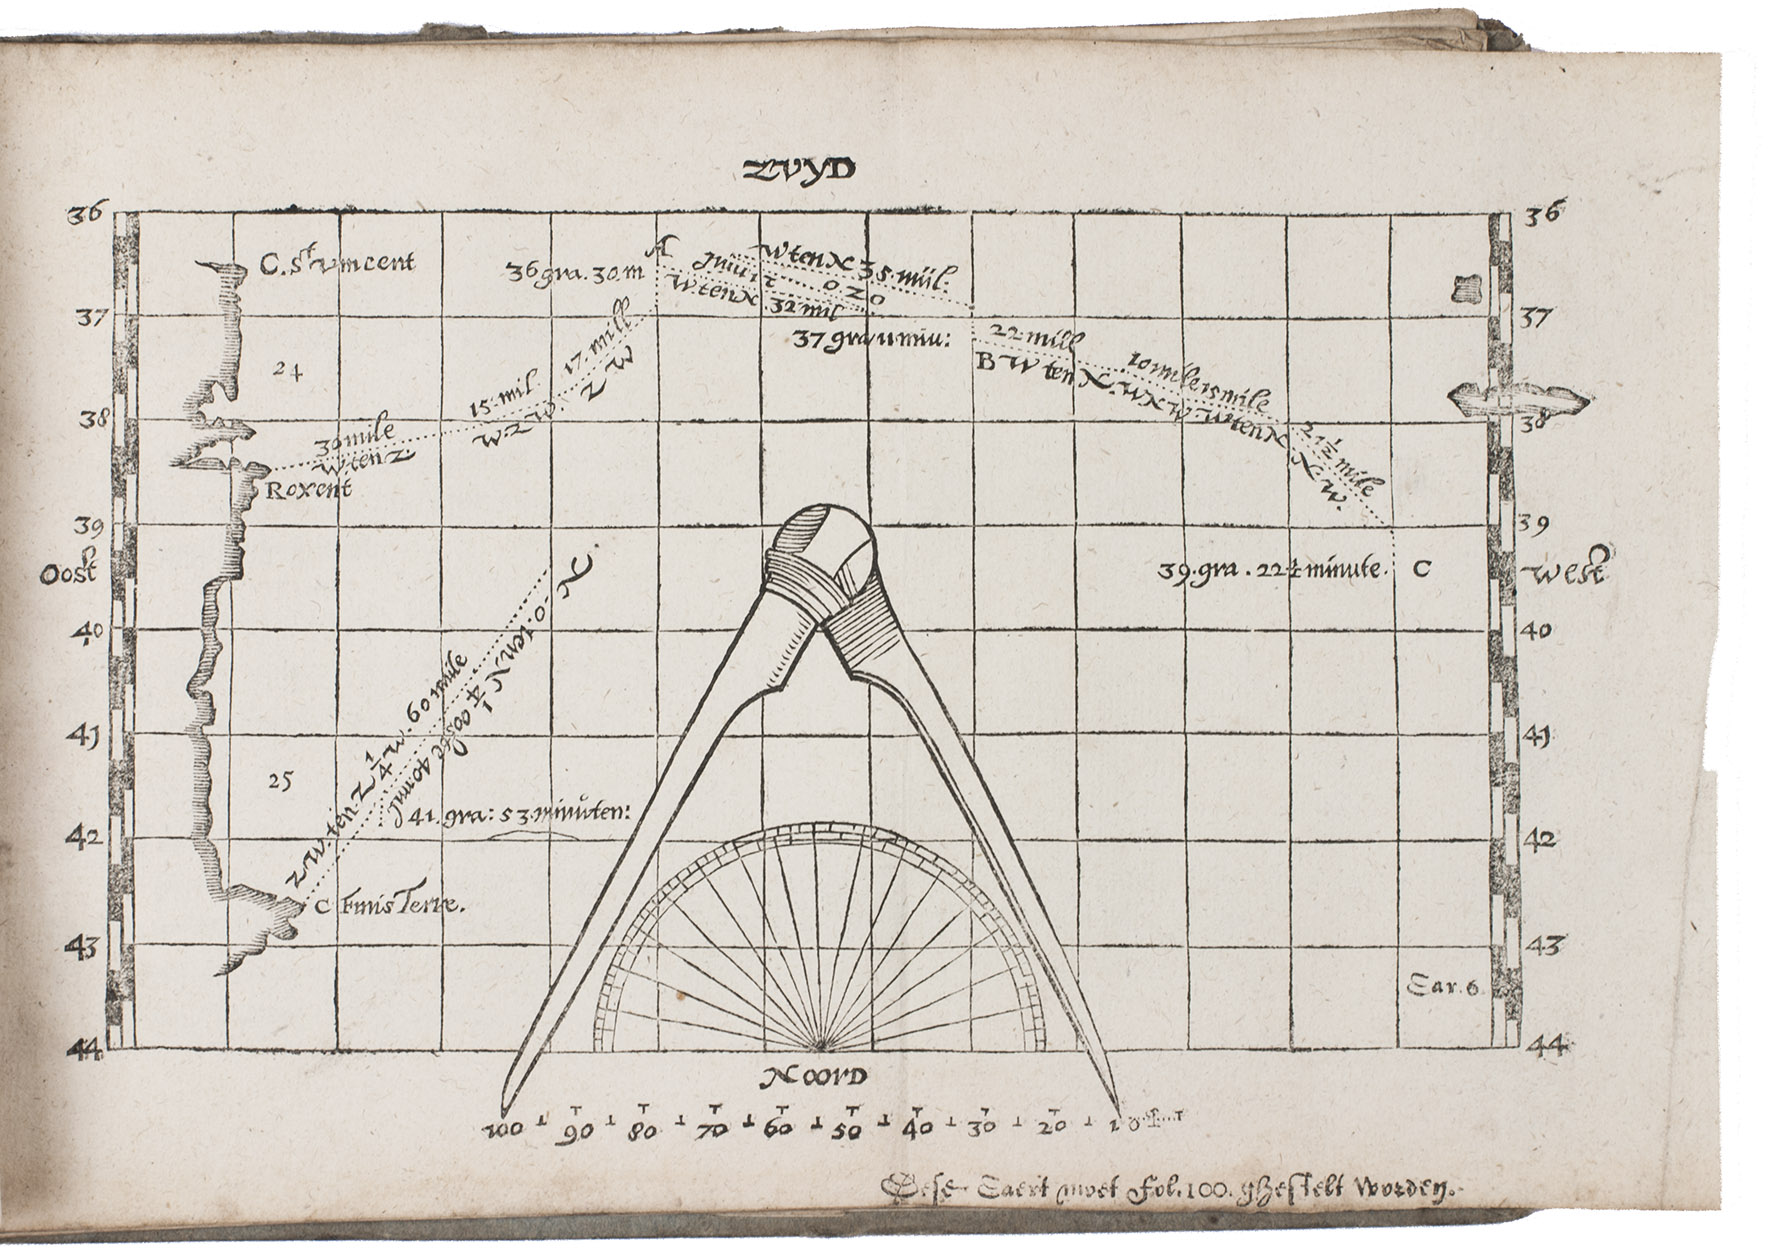 ZVYD
36
36
C. St Vincent
36 gra. 30 m
A
W ten N 35 mijl.
W ten N 32 mil
37
37
37 gra 11 miu:
17. mill
Z W
22 mill
B W ten N.
W N W
W ten N
10 mile
15 mile
24
15 mil.
W. Z W.
38
38
30 mile
W. ten Z
Roxent
21 1/2 mile
N W.
39
39
Oost
West
39. gra. 22 1/2 minute.
C
40
40
Z W. ten Z 1/4 W. 60 mile
N O. ten N 1/4 ooste 40 mil
41
41
25
41. gra: 53 minuten:
42
42
C Finis Terre.
43
43
Car. 6.
44
44
NOORD
100 90 80 70 60 50 40 30 20 10
Dese Caert moet Fol. 100. ghestelt worden.